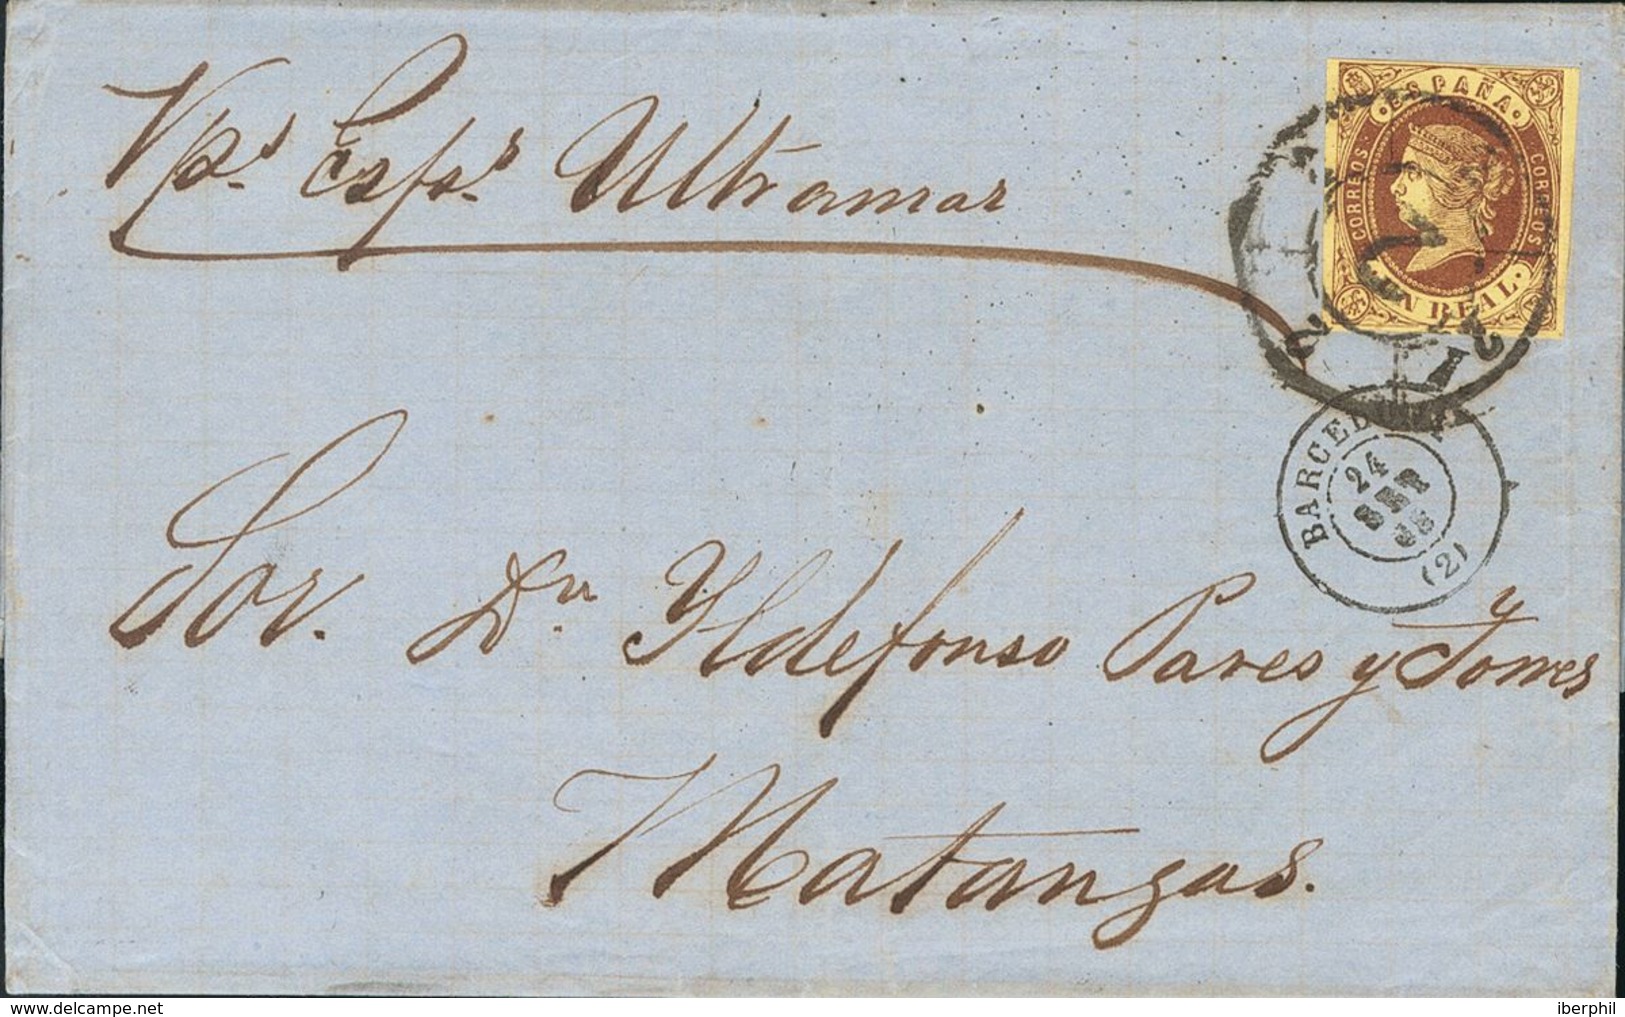 Vps. Esps. Ultramar
ESPAÑA
CORREOS
CORREOS
UN REAL
BARCELONA
24
SET
(2)
Sor. Dn Yldefonso Pares y Torres
Matanzas.
delcampe.net
iberphil